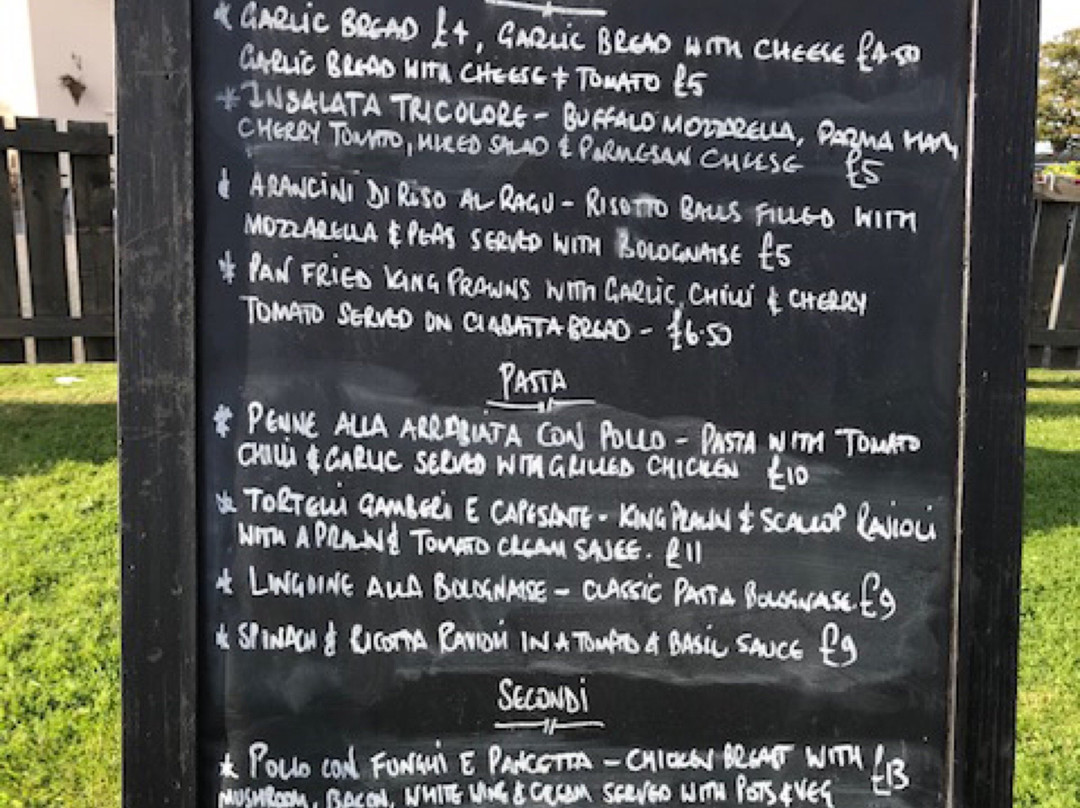 * GARLIC BREAD £4, GARLIC BREAD WITH CHEESE £4.50
GARLIC BREAD WITH CHEESE & TOMATO £5
* INSALATA TRICOLORE - BUFFALO MOZZARELLA, PARMA HAM,
CHERRY TOMATO, MIXED SALAD & PARMESAN CHEESE £5
* ARANCINI DI RISO AL RAGU - RISOTTO BALLS FILLED WITH
MOZZARELLA & PEAS SERVED WITH BOLOGNAISE £5
* PAN FRIED KING PRAWNS WITH GARLIC, CHILLI & CHERRY
TOMATO SERVED ON CIABATTA BREAD - £6.50
PASTA
* PENNE ALLA ARRABIATA CON POLLO - PASTA WITH TOMATO
CHILLI & GARLIC SERVED WITH GRILLED CHICKEN £10
* TORTELLI GAMBERI E CAPESANTE - KING PRAWN & SCALLOP RAVIOLI
WITH A PRAWN & TOMATO CREAM SAUCE. £11
* LINGUINE ALLA BOLOGNAISE - CLASSIC PASTA BOLOGNAISE. £9
* SPINACH & RICOTTA RAVIOLI IN A TOMATO & BASIL SAUCE £9
SECONDI
* POLLO CON FUNGHI E PANCETTA - CHICKEN BREAST WITH £13
MUSHROOM, BACON, WHITE WINE & CREAM SERVED WITH POTS & VEG